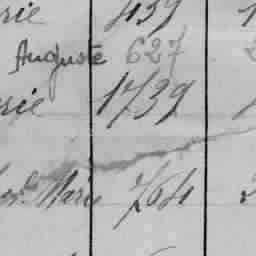 rie 439
Auguste 627
rie 1739
Marie 764